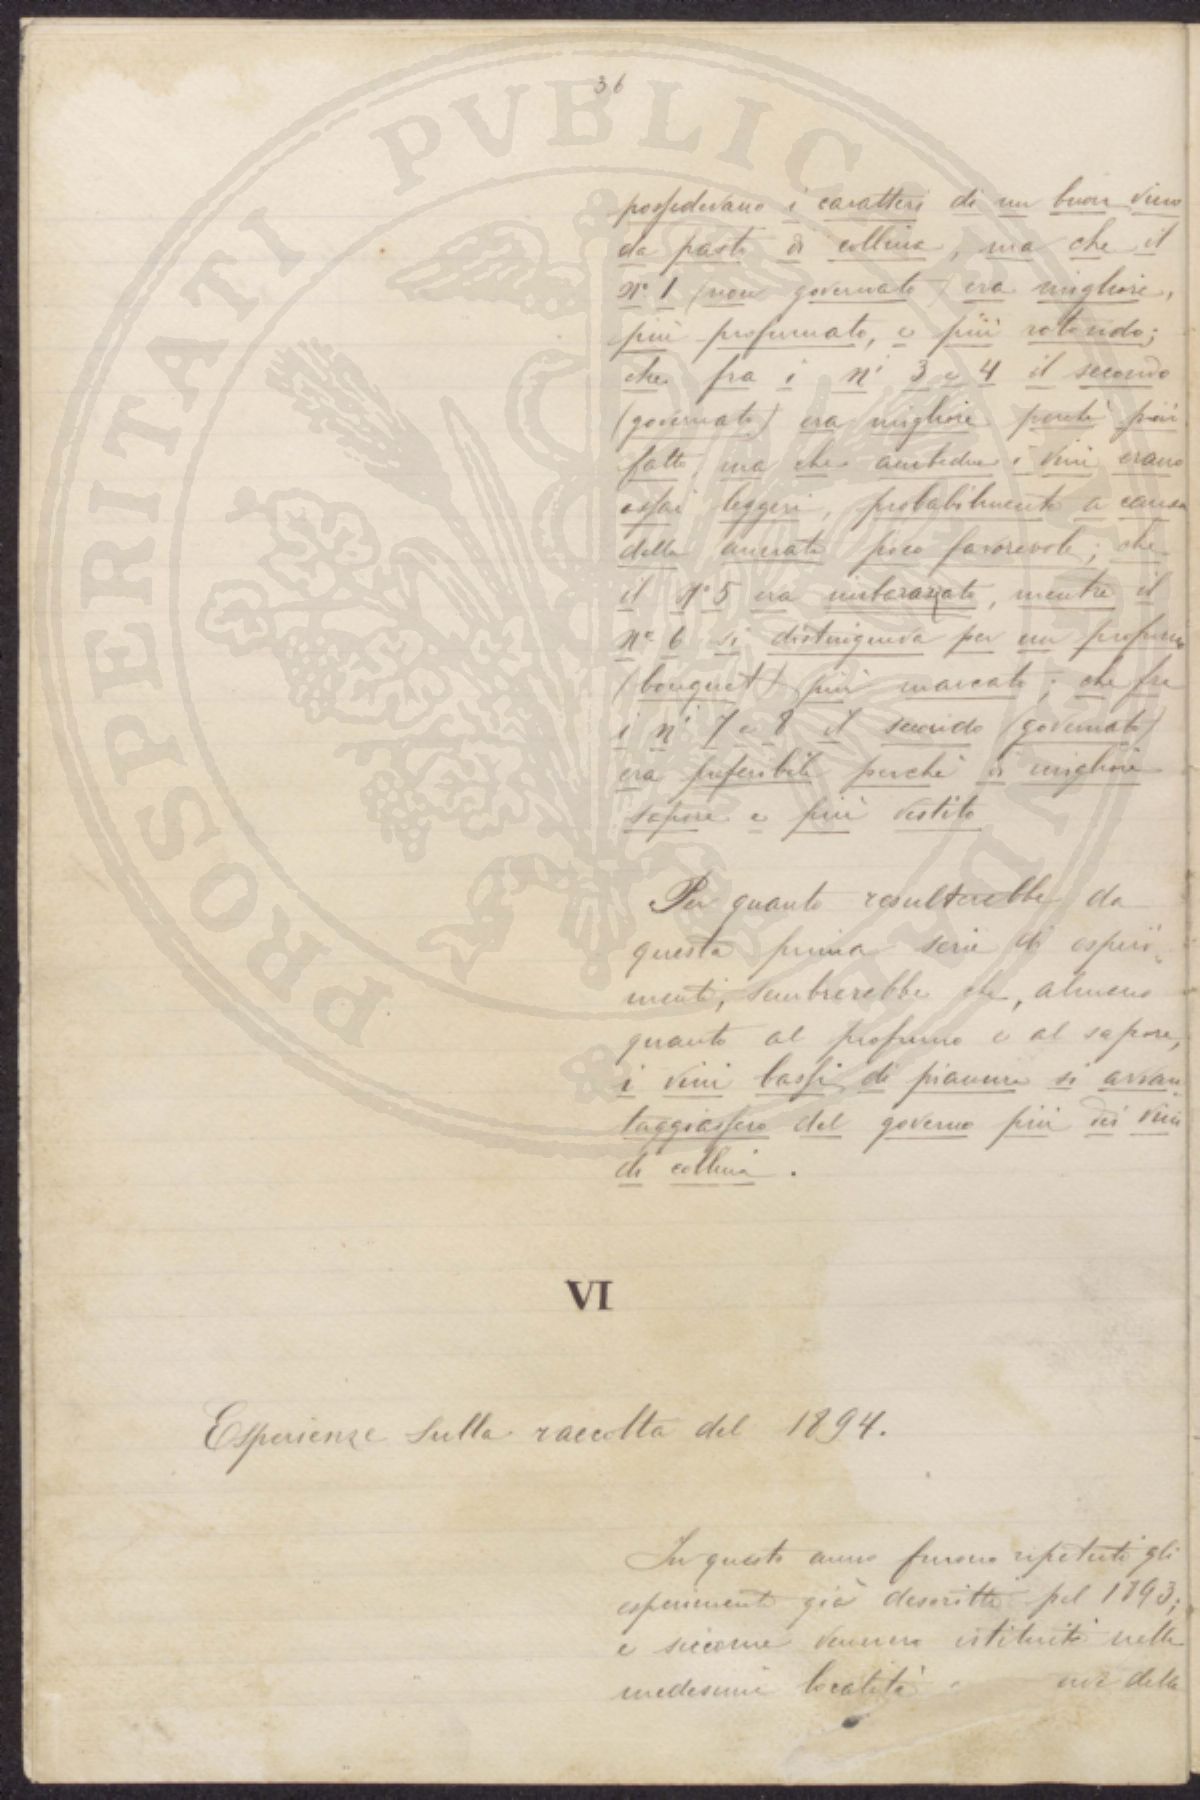 36
possedevano i caratteri di un buon vino
da pasto di collina, ma che il
N.° 1 (non governato) era migliore,
più profumato, e più rotondo;
che fra i nⁱ 3 e 4 il secondo
(governato) era migliore perchè più
fatto, ma che ambedue i vini erano
assai leggeri, probabilmente a causa
della annata poco favorevole; che
il N.° 5 era imbarazzato, mentre il
n.° 6 si distingueva per un profumo
(bouquet) più marcato; che fra
i nⁱ 7 e 8 il secondo (governato)
era preferibile perchè di migliore
sapore e più vestito
Per quanto resulterebbe da
questa prima serie di esperi-
menti, sembrerebbe che, almeno
quanto al profumo e al sapore,
i vini bassi di pianura si avvan
taggiassero del governo più dei vini
di collina.
VI
Esperienze sulla raccolta del 1894.
In questo anno furono ripetuti gli
esperimenti già descritti pel 1893;
e siccome vennero istituiti nelle
medesime località e uve della
PROSPERITATI PVBLICAE